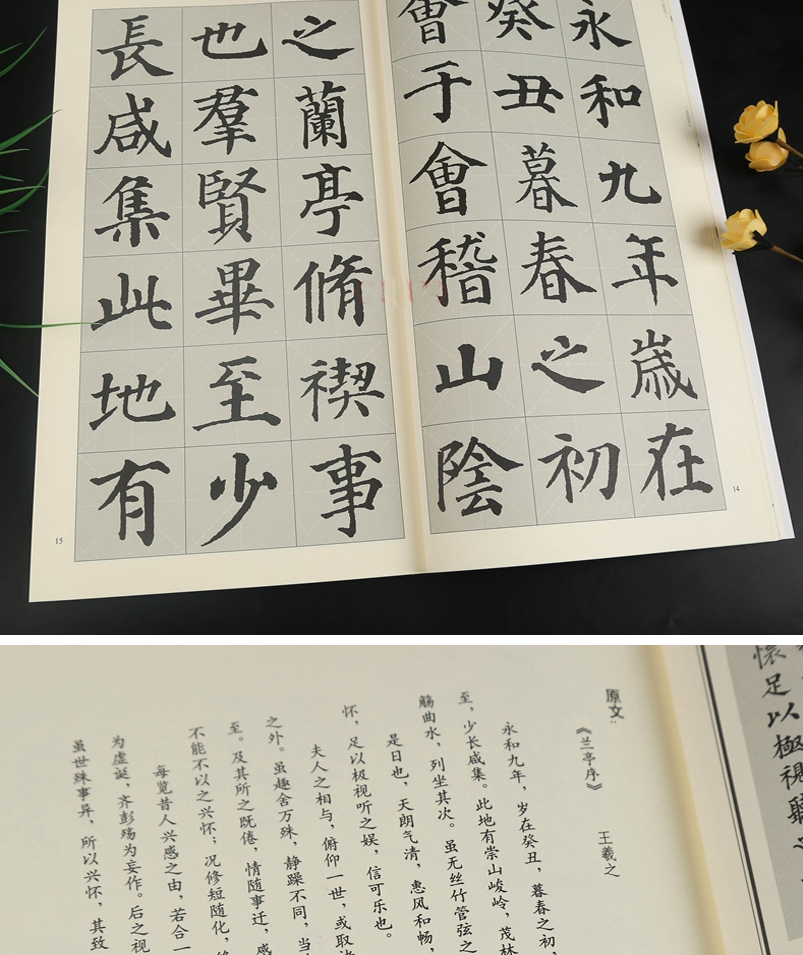 永和九年歳在
癸丑暮春之初
會于會稽山陰
之蘭亭脩禊事
也羣賢畢至少
長咸集此地有
14
15
原文：
《兰亭序》 王羲之
永和九年，岁在癸丑，暮春之初，
至，少长咸集。此地有崇山峻岭，茂林
觞曲水，列坐其次。虽无丝竹管弦之
是日也，天朗气清，惠风和畅，
怀，足以极视听之娱，信可乐也。
夫人之相与，俯仰一世，或取诸
之外。虽趣舍万殊，静躁不同，当
至。及其所之既倦，情随事迁，感
不能不以之兴怀；况修短随化，终
每览昔人兴感之由，若合一
为虚诞，齐彭殇为妄作。后之视
虽世殊事异，所以兴怀，其致
懷足以極視聽